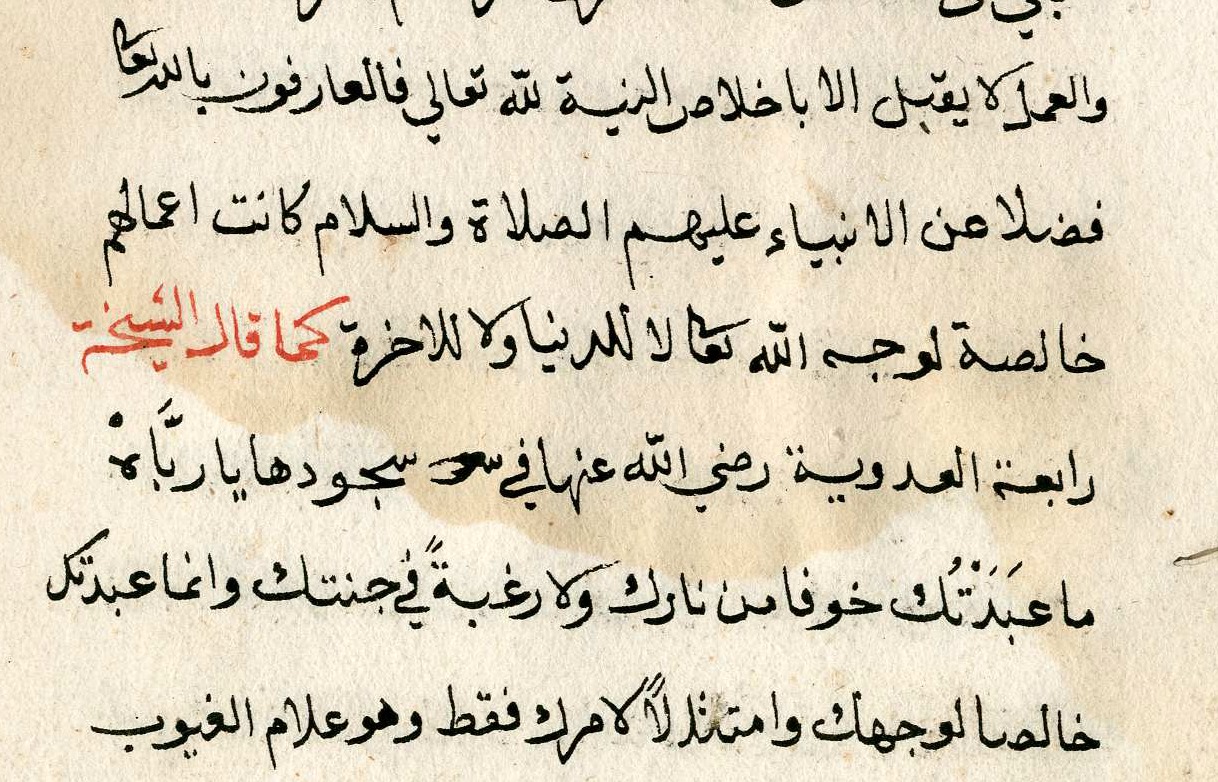 والعمل لا يقبل الا باخلاص النية لله تعالي فالعارفون بالله تعا
فضلا عن الانبياء عليهم الصلاة والسلام كانت اعمالهم
خالصة لوجه الله تعا لا للدنيا ولا للاخرة كما قالت الشيخة
رابعة العدوية رضي الله عنها في سجودها يا ربَّاهْ
ما عبَدَتْتُك خوفا من نارك ولا رغبةً في جنتك وانما عبدتك
خالصا لوجهك وامتثالاً لامرك فقط وهو علام الغيوب